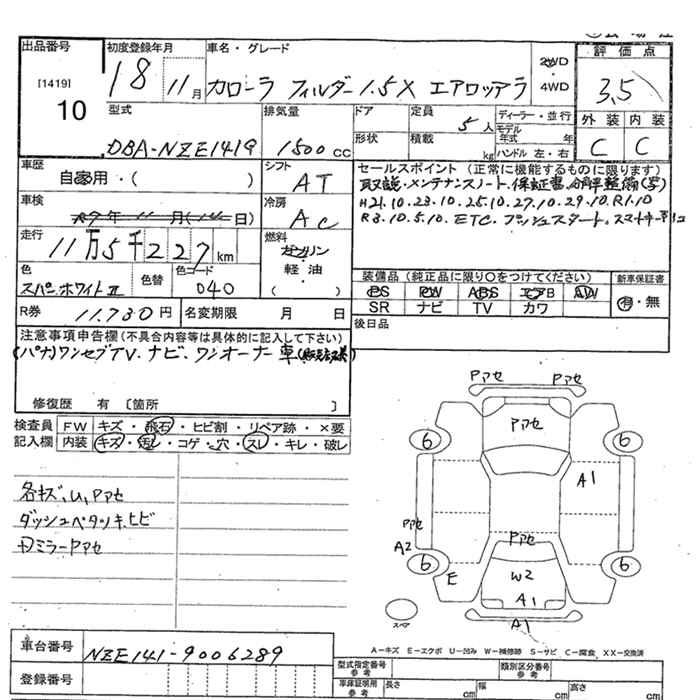 出品番号 初度登録年月 車名・グレード 評価点
[1419]
10
18 11月 カローラ フィルダー 1.5X エアロツアラ 2WD・4WD 3.5
型式 排気量 ドア 定員 ディーラー・並行 外装 内装
DBA-NZE141G 1500cc 形状 積載 5人 kg モデル年式 年 ハンドル 左・右 C C
車歴 シフト セールスポイント(正常に機能するものに限ります)
自家用・( ) AT 取説・メンテナンスノート・保証書・分解整備(写)
車検 冷房 H21.10.23.10.25.10.27.10.29.10.R1.10
年11月( 日 AC R3.10.5.10.ETC.プッシュスタート.スマートキー
走行 燃料
11万5千227km ガソリン
軽・油
( )
色 色替 色コード 装備品(純正品に限り○をつけてください) 新車保証書
スーパーホワイトII 040 PS PW ABS エアB AW 有・無
SR ナビ TV カワ
R券 11,730円 名変期限 月 日 後日品
注意事項申告欄(不具合内容等は具体的に記入して下さい)
(パナ)ワンセグTV.ナビ.ワンオーナー車
修復歴 有 [箇所 ]
検査員 FW キズ・飛石・ヒビ割・リペア跡・×要
記入欄 内装 キズ・汚レ・コゲ・穴・スレ・キレ・破レ
各キズ,U,Pアセ
ダッシュベタツキ.ヒビ
Pアセ
Pアセ Pアセ
Pアセ
6 6
A1
Pアセ
A2
Pアセ
6 6
E
W2
A1
A1
スペア
A-キズ E-エクボ U-凹み W-補修跡 S-サビ C-腐食 XX-交換済
車台番号 NZE141-9006289
登録番号
型式指定番号 参考 類別区分番号 参考
車庫証明用 参考 長さ cm 幅 cm 高さ cm